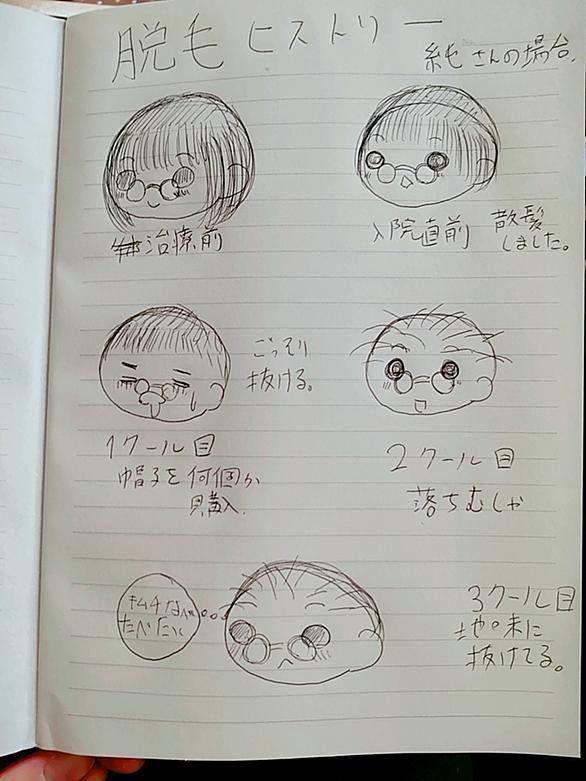 脱毛ヒストリー
純毛さんの場合.
治療前
入院直前
散髪
しました。
ごっそり
抜ける。
1クール目
帽子を何個か
購入.
2クール目
落ちむしゃ
キムチなべ
たべたい
3クール目
地味に
抜けてる。